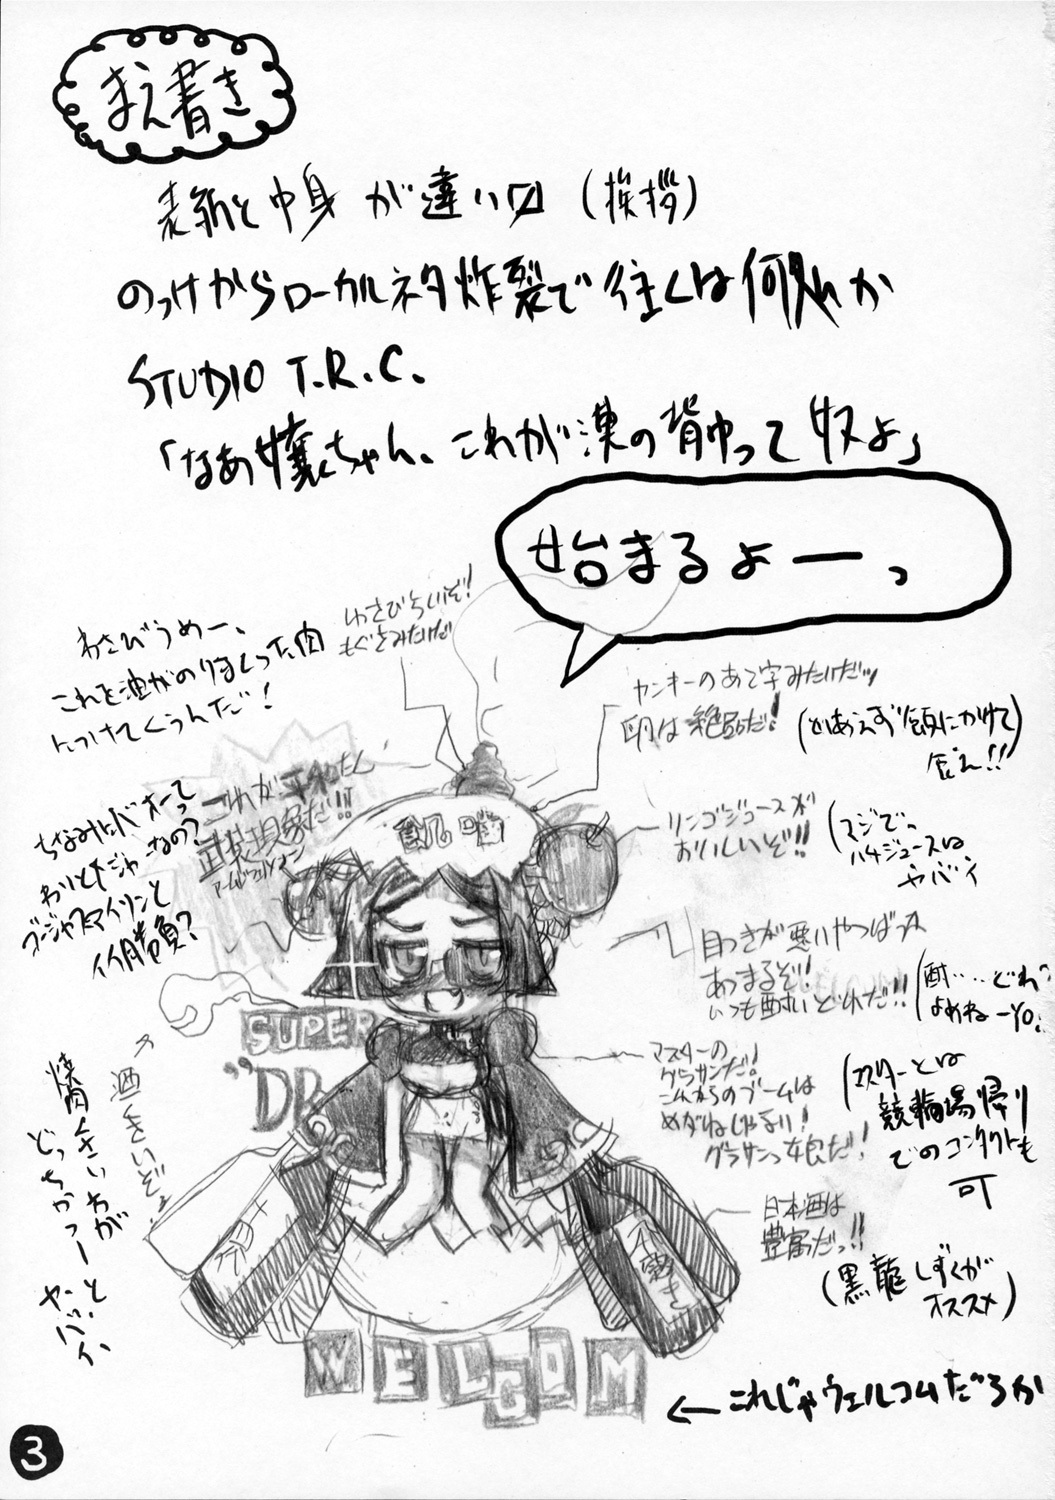 まえ書き
表紙と中身が違い〼（挨拶）
のっけからローカルネタ炸裂で往くは何処か
STUDIO T.R.C.
「なあ嬢ちゃん、これが漢の背中って奴よ」
始まるよーっ
わさびうめー、
これを油がのりまくった肉
につけてくうんだ！
わさび
もぐさみたいだ
ヤンキーのあて字みたいだッ
卵は絶品だ！
（とりあえず飯にかけて
食え!!）
これが
武装現象だ!!!
ちなみにバオーって
イイ勝負？
リンゴジュースが
おいしいぞ!!
（マジでっ
ハチジュースは
ヤバイ
目つきが悪いやつばっか
あつまるぞ！
いつも酔いどれだ!!
（酎‥‥どれ？
よめねーYO！
マスターの
グラサンだ！
これからのブームは
めがねじゃない！
グラサンっ娘だ！
（マスターとは
競輪場帰り
でのコンタクトも
可
日本酒は
豊富だっ!!
（黒龍しずくが
オススメ）
酒くさいぞ
焼肉くさいわが
どっちかっーと
ヤバイ
SUPER
"DR
WELCOM
←これじゃウェルコムだろが
3